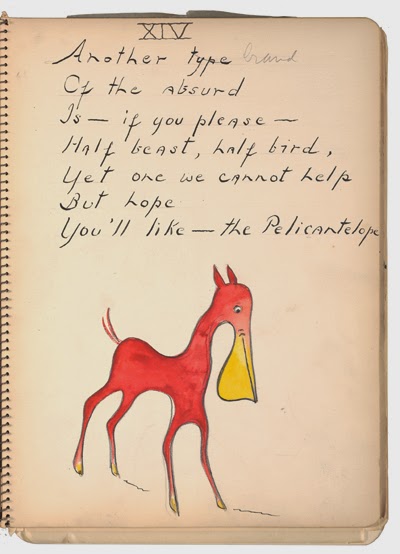 XIV
Another type brand
Of the absurd
Is — if you please —
Half beast, half bird,
Yet one we cannot help
But hope
You'll like — the Pelicantelope